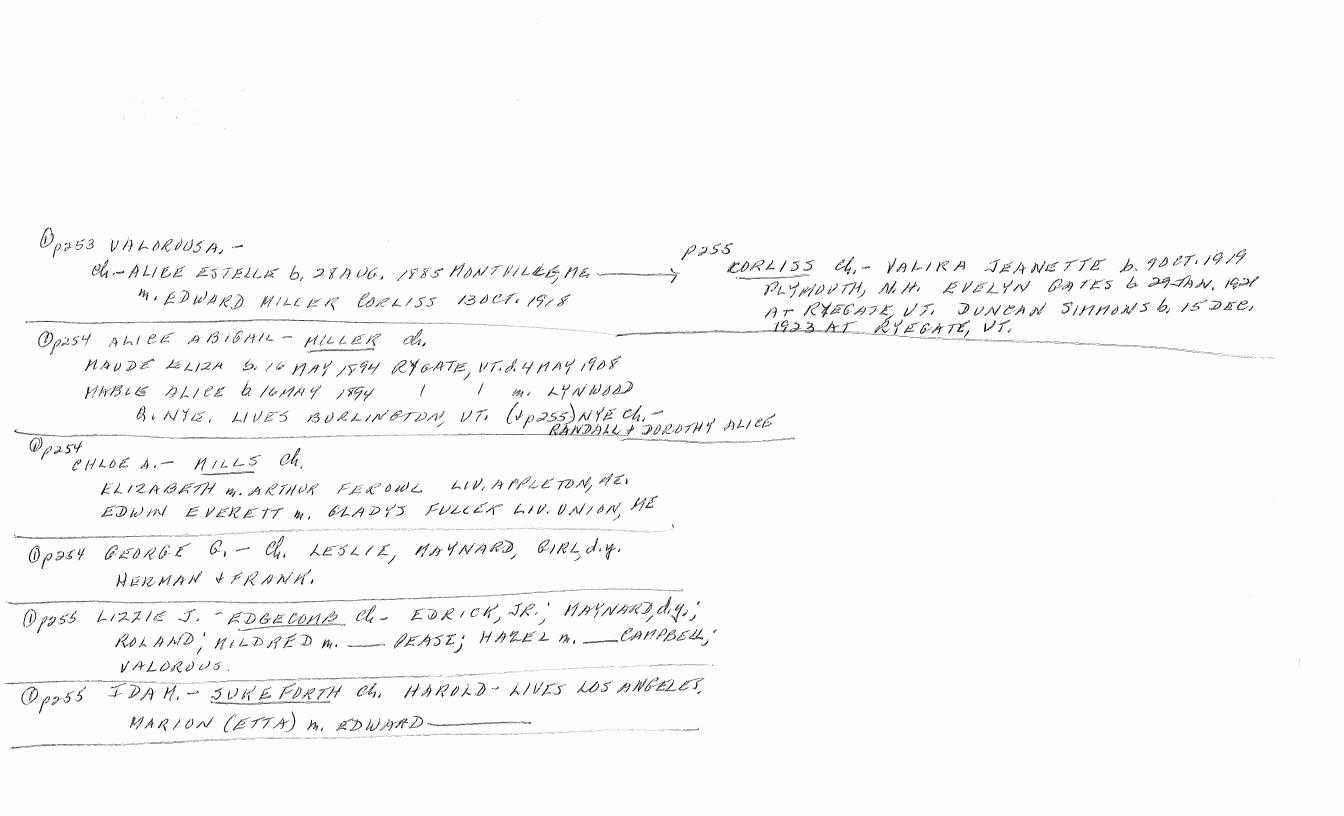 ① p253 VALOROUS A. -
ch- ALICE ESTELLE b. 28 AUG. 1885 MONTVILLE, ME →
m. EDWARD MILLER CORLISS 13 OCT. 1918
p255
CORLISS ch. - VALIRA JEANETTE b. 9 OCT. 1919
PLYMOUTH, N.H. EVELYN GATES b 29 JAN. 1921
AT RYEGATE, VT. DUNCAN SIMMONS b. 15 DEC.
1923 AT RYEGATE, VT.
① p254 ALICE ABIGAIL - MILLER ch.
MAUDE ELIZA b. 16 MAY 1894 RYGATE, VT. d. 4 MAY 1908
MABLE ALICE b. 16 MAY 1894 " " m. LYNWOOD
G. NYE. LIVES BURLINGTON, VT. (↓ p255) NYE ch. -
RANDALL & DOROTHY ALICE
① p254
CHLOE A. - MILLS ch.
ELIZABETH m. ARTHUR LIV. APPLETON, ME.
EDWIN EVERETT m. GLADYS FULLER LIV. UNION, ME
① p254 GEORGE G. - ch. LESLIE, MAYNARD, GIRL, d.y.
HERMAN & FRANK.
① p255 LIZZIE J. - EDGECOMB ch - EDRICK, JR.; MAYNARD, d.y.;
ROLAND; MILDRED m. ___ PEASE; HAZEL m. ___ CAMPBELL;
VALOROUS.
① p255 IDA M. - SUKEFORTH ch. HAROLD - LIVES LOS ANGELES.
MARION (ETTA) m. EDWARD ___